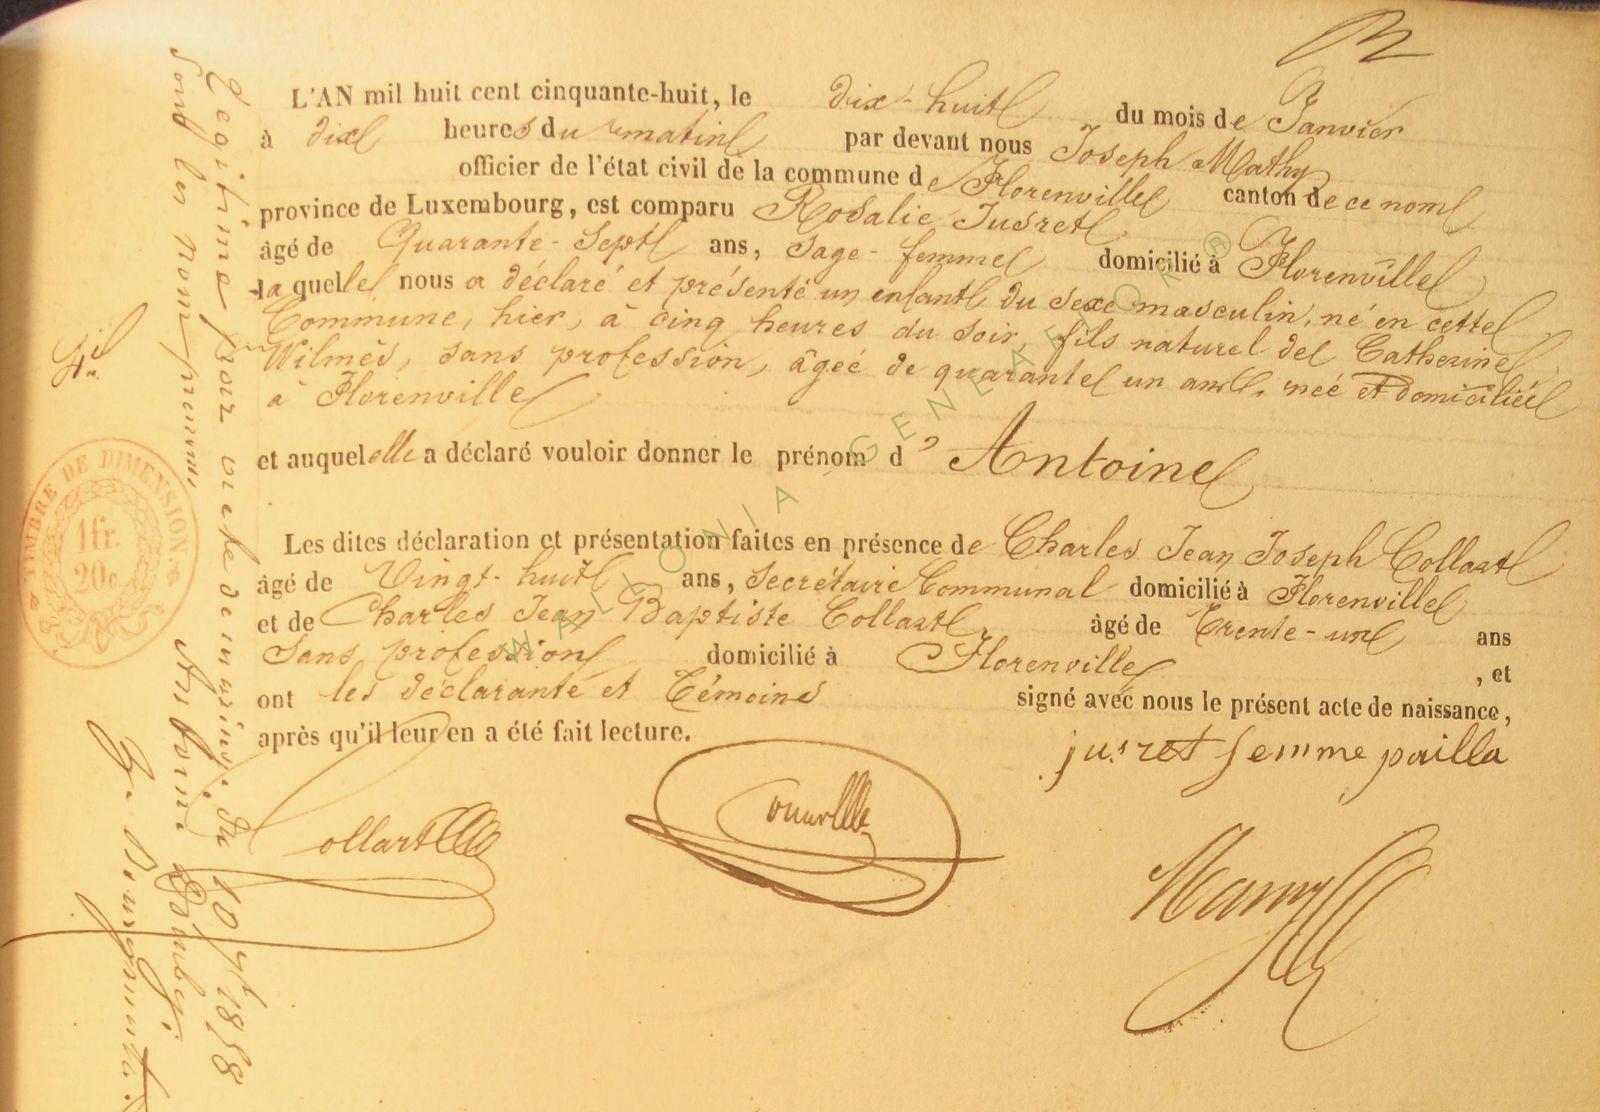 L'AN mil huit cent cinquante-huit, le dix-huit du mois de Janvier
à dix heures du matin par devant nous Joseph Mathy
officier de l'état civil de la commune de Florenville canton de ce nom
province de Luxembourg, est comparu Rosalie Jusret
âgé de Quarante-Sept ans, sage-femme domicilié à Florenville
laquelle nous a déclaré et présenté un enfant du sexe masculin, né en cette
Commune, hier, à cinq heures du soir, fils naturel de Catherine
Wilmès, sans profession, âgée de quarante un ans, née et domiciliée
à Florenville
et auquel elle a déclaré vouloir donner le prénom d'Antoine
Les dites déclaration et présentation faites en présence de Charles Jean Joseph Collart
âgé de Vingt-huit ans, Secrétaire Communal domicilié à Florenville
et de Charles Jean Baptiste Collart âgé de Trente-un ans
Sans profession domicilié à Florenville, et
ont les déclarante et Témoins signé avec nous le présent acte de naissance,
après qu'il leur en a été fait lecture.
jusret femme
Collart
Légitimé par acte de mariage du 10 1858
sous les nom prénoms
Antoine
TIMBRE DE DIMENSION
1fr.
20c.
WALLONIA - GENEALOR ®